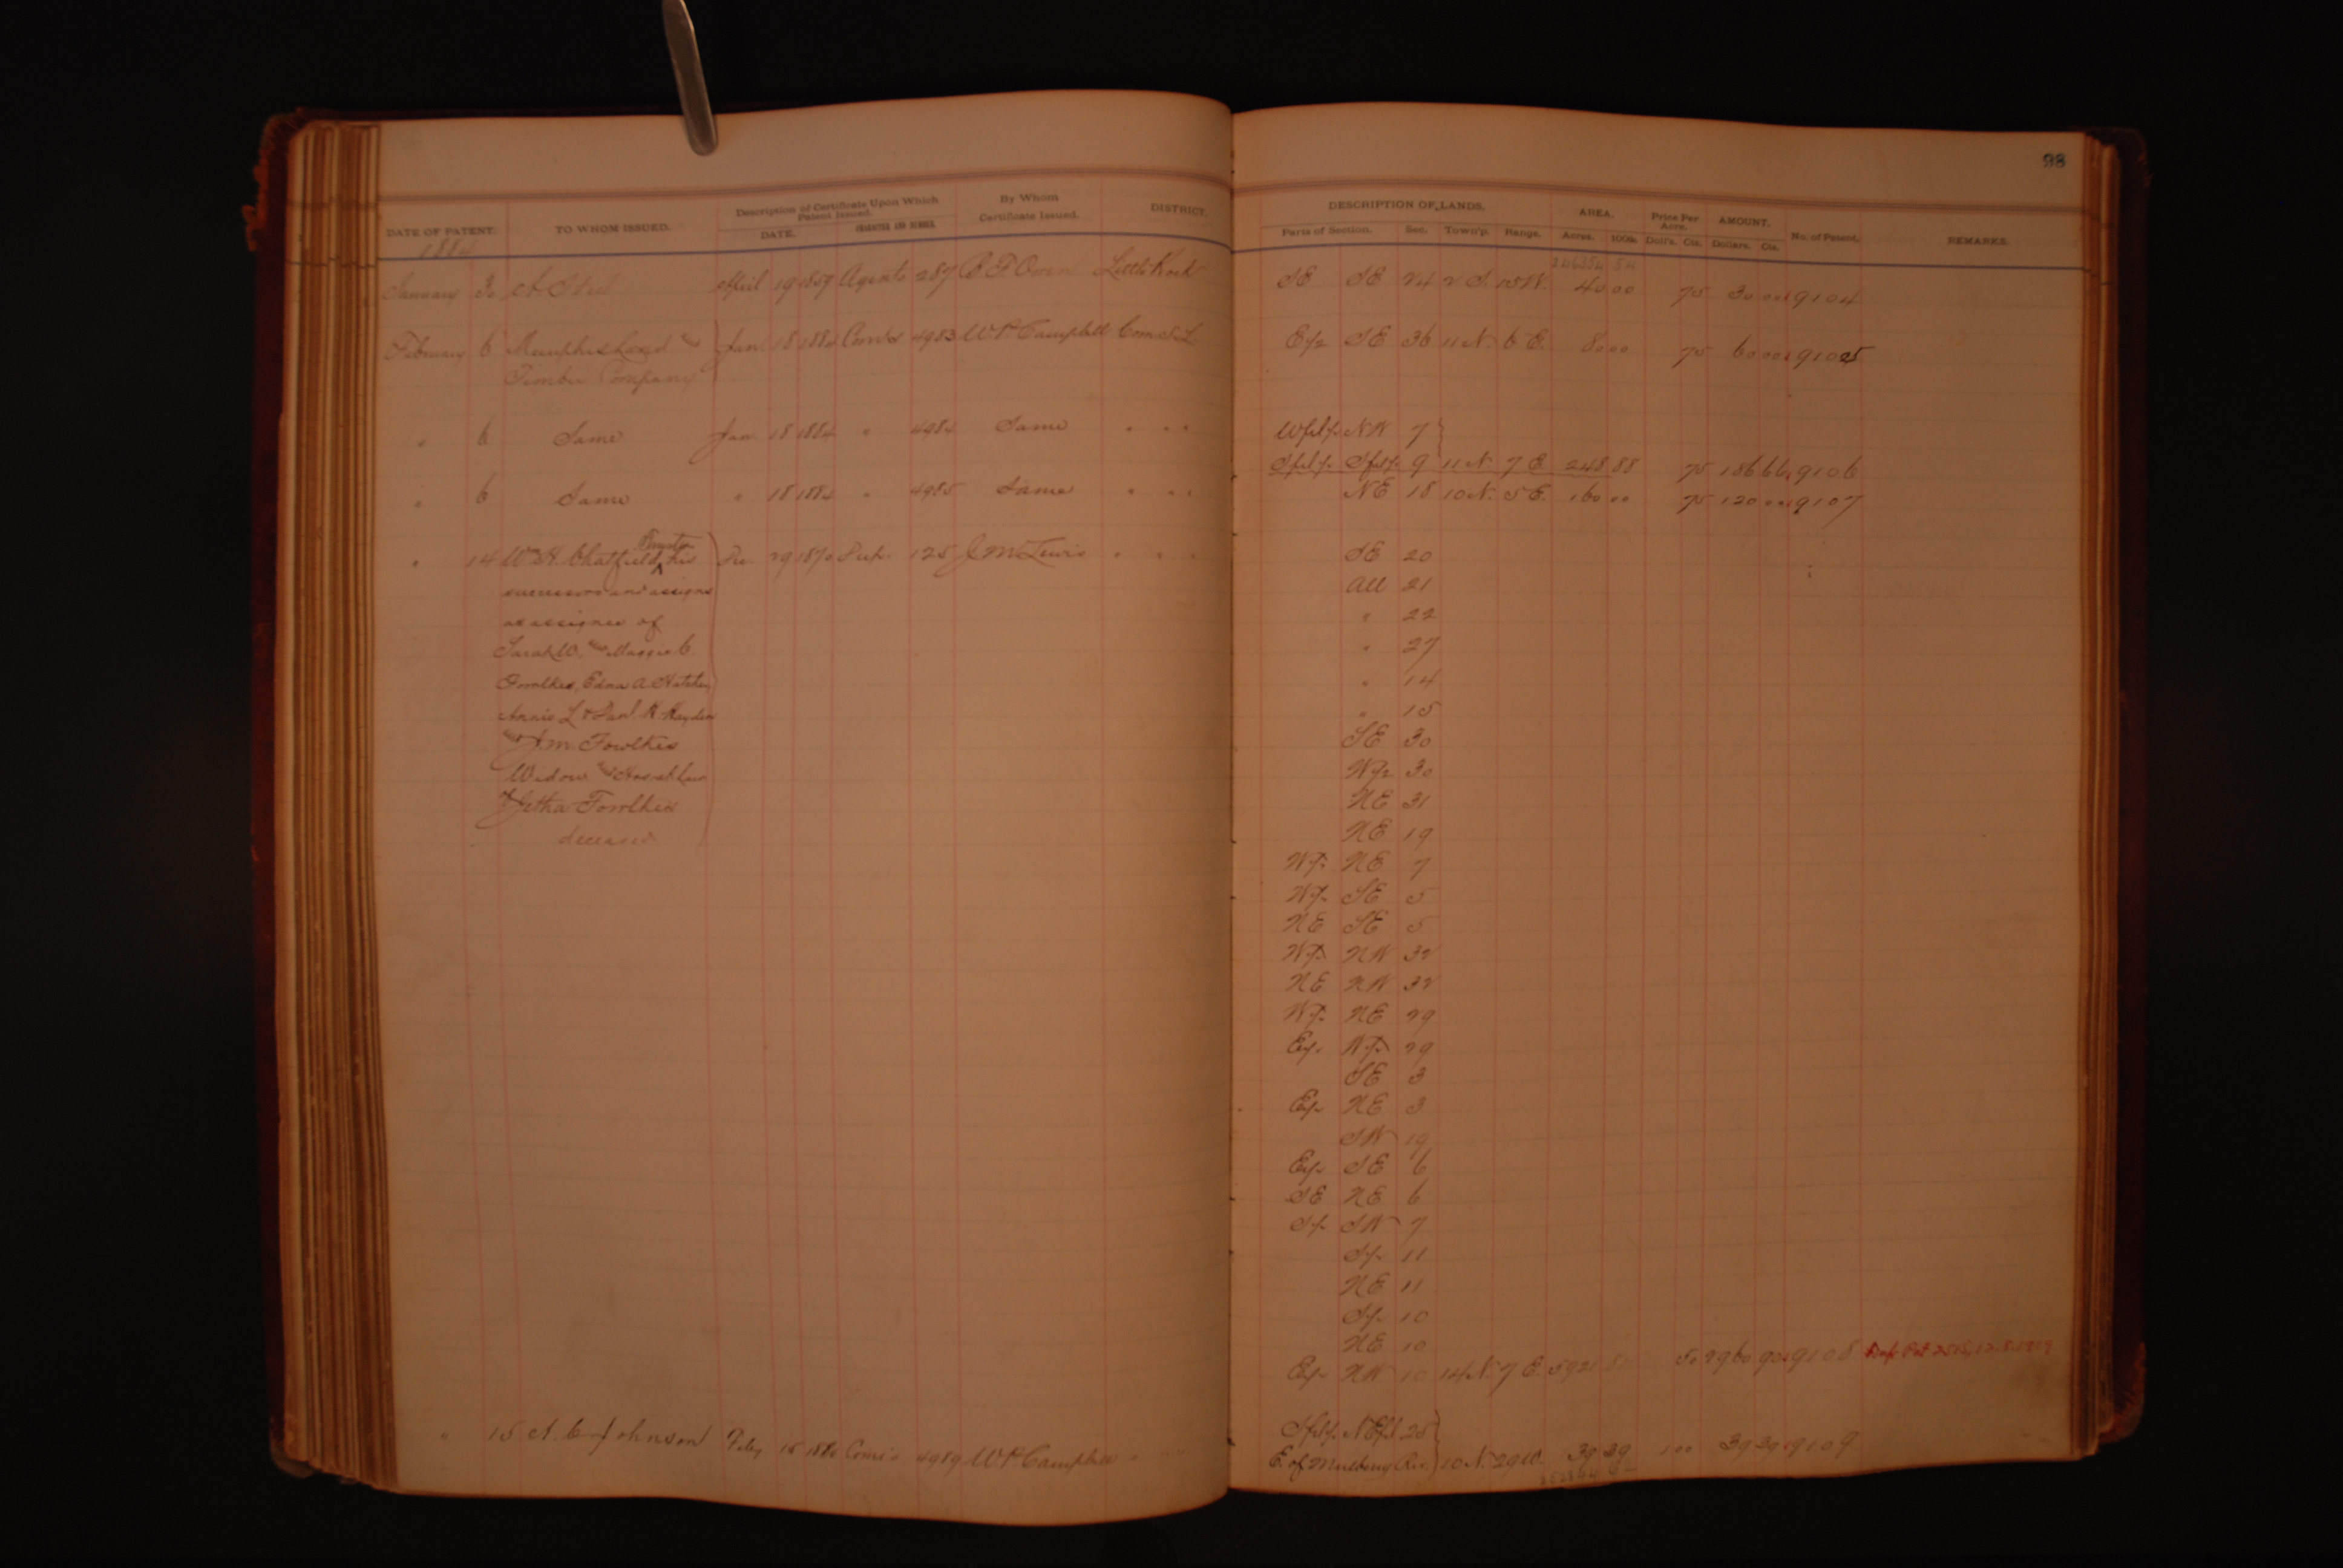 98
DATE OF PATENT. TO WHOM ISSUED. Description of Certificate Upon Which Patent Issued. By Whom Certificate Issued. DISTRICT. DESCRIPTION OF LANDS. AREA. Price Per Acre. AMOUNT. No. of Patent. REMARKS.
DATE. CHARACTER AND NUMBER Parts of Section. Sec. Town'p. Range. Acres. 100s. Doll's. Cts. Dollars. Cts.
1884
January 30 A. Steel April 19 1859 Agents 287 B F Owen Little Rock SE SE 24 2 S. 15 W. 40 00 75 30 00 9104
February 6 Memphis Land and Jan. 18 1884 Com's 4983 W P Campbell Com S L E ½ SE 36 11 N. 6 E. 80 00 75 60 00 9105
Timber Company
" 6 Same Jan. 18 1884 " 4984 Same " " " NW 7
9 11 N. 7 E. 248 88 75 186 66 9106
" 6 Same " 18 1884 " 4985 Same " " " NE 18 10 N. 5 E. 160 00 75 120 00 9107
" 14 Wm H. Chatfield, Trustee his 29 1870 125 J M Lewis " " " SE 20
successors and assigns All 21
as assignee of " 22
Sarah W. and Maggie C. " 27
Fowlkes, Edna A. " 14
Annie L & Saml. K. Hayden " 15
and J. M. Fowlkes SE 30
Widow and W ½ 30
of Jetha Fowlkes NE 31
deceased NE 19
W ½ NE 7
W ½ SE 5
NE SE 5
W ½ NW 32
NE NW 32
W ½ NE 29
E ½ W ½ 29
SE 3
E ½ NE 3
SW 19
E ½ SE 6
SE NE 6
S ½ SW 7
S ½ 11
NE 11
S ½ 10
NE 10
E ½ NW 10 14 N. 7 E. 5921 50 2960 90 9108
" 15 A. C. Johnson Feby 15 4989 W P Campbell " 25
E. of Mulberry Riv. 10 N. 29 W. 39 39 1 00 39 39 9109